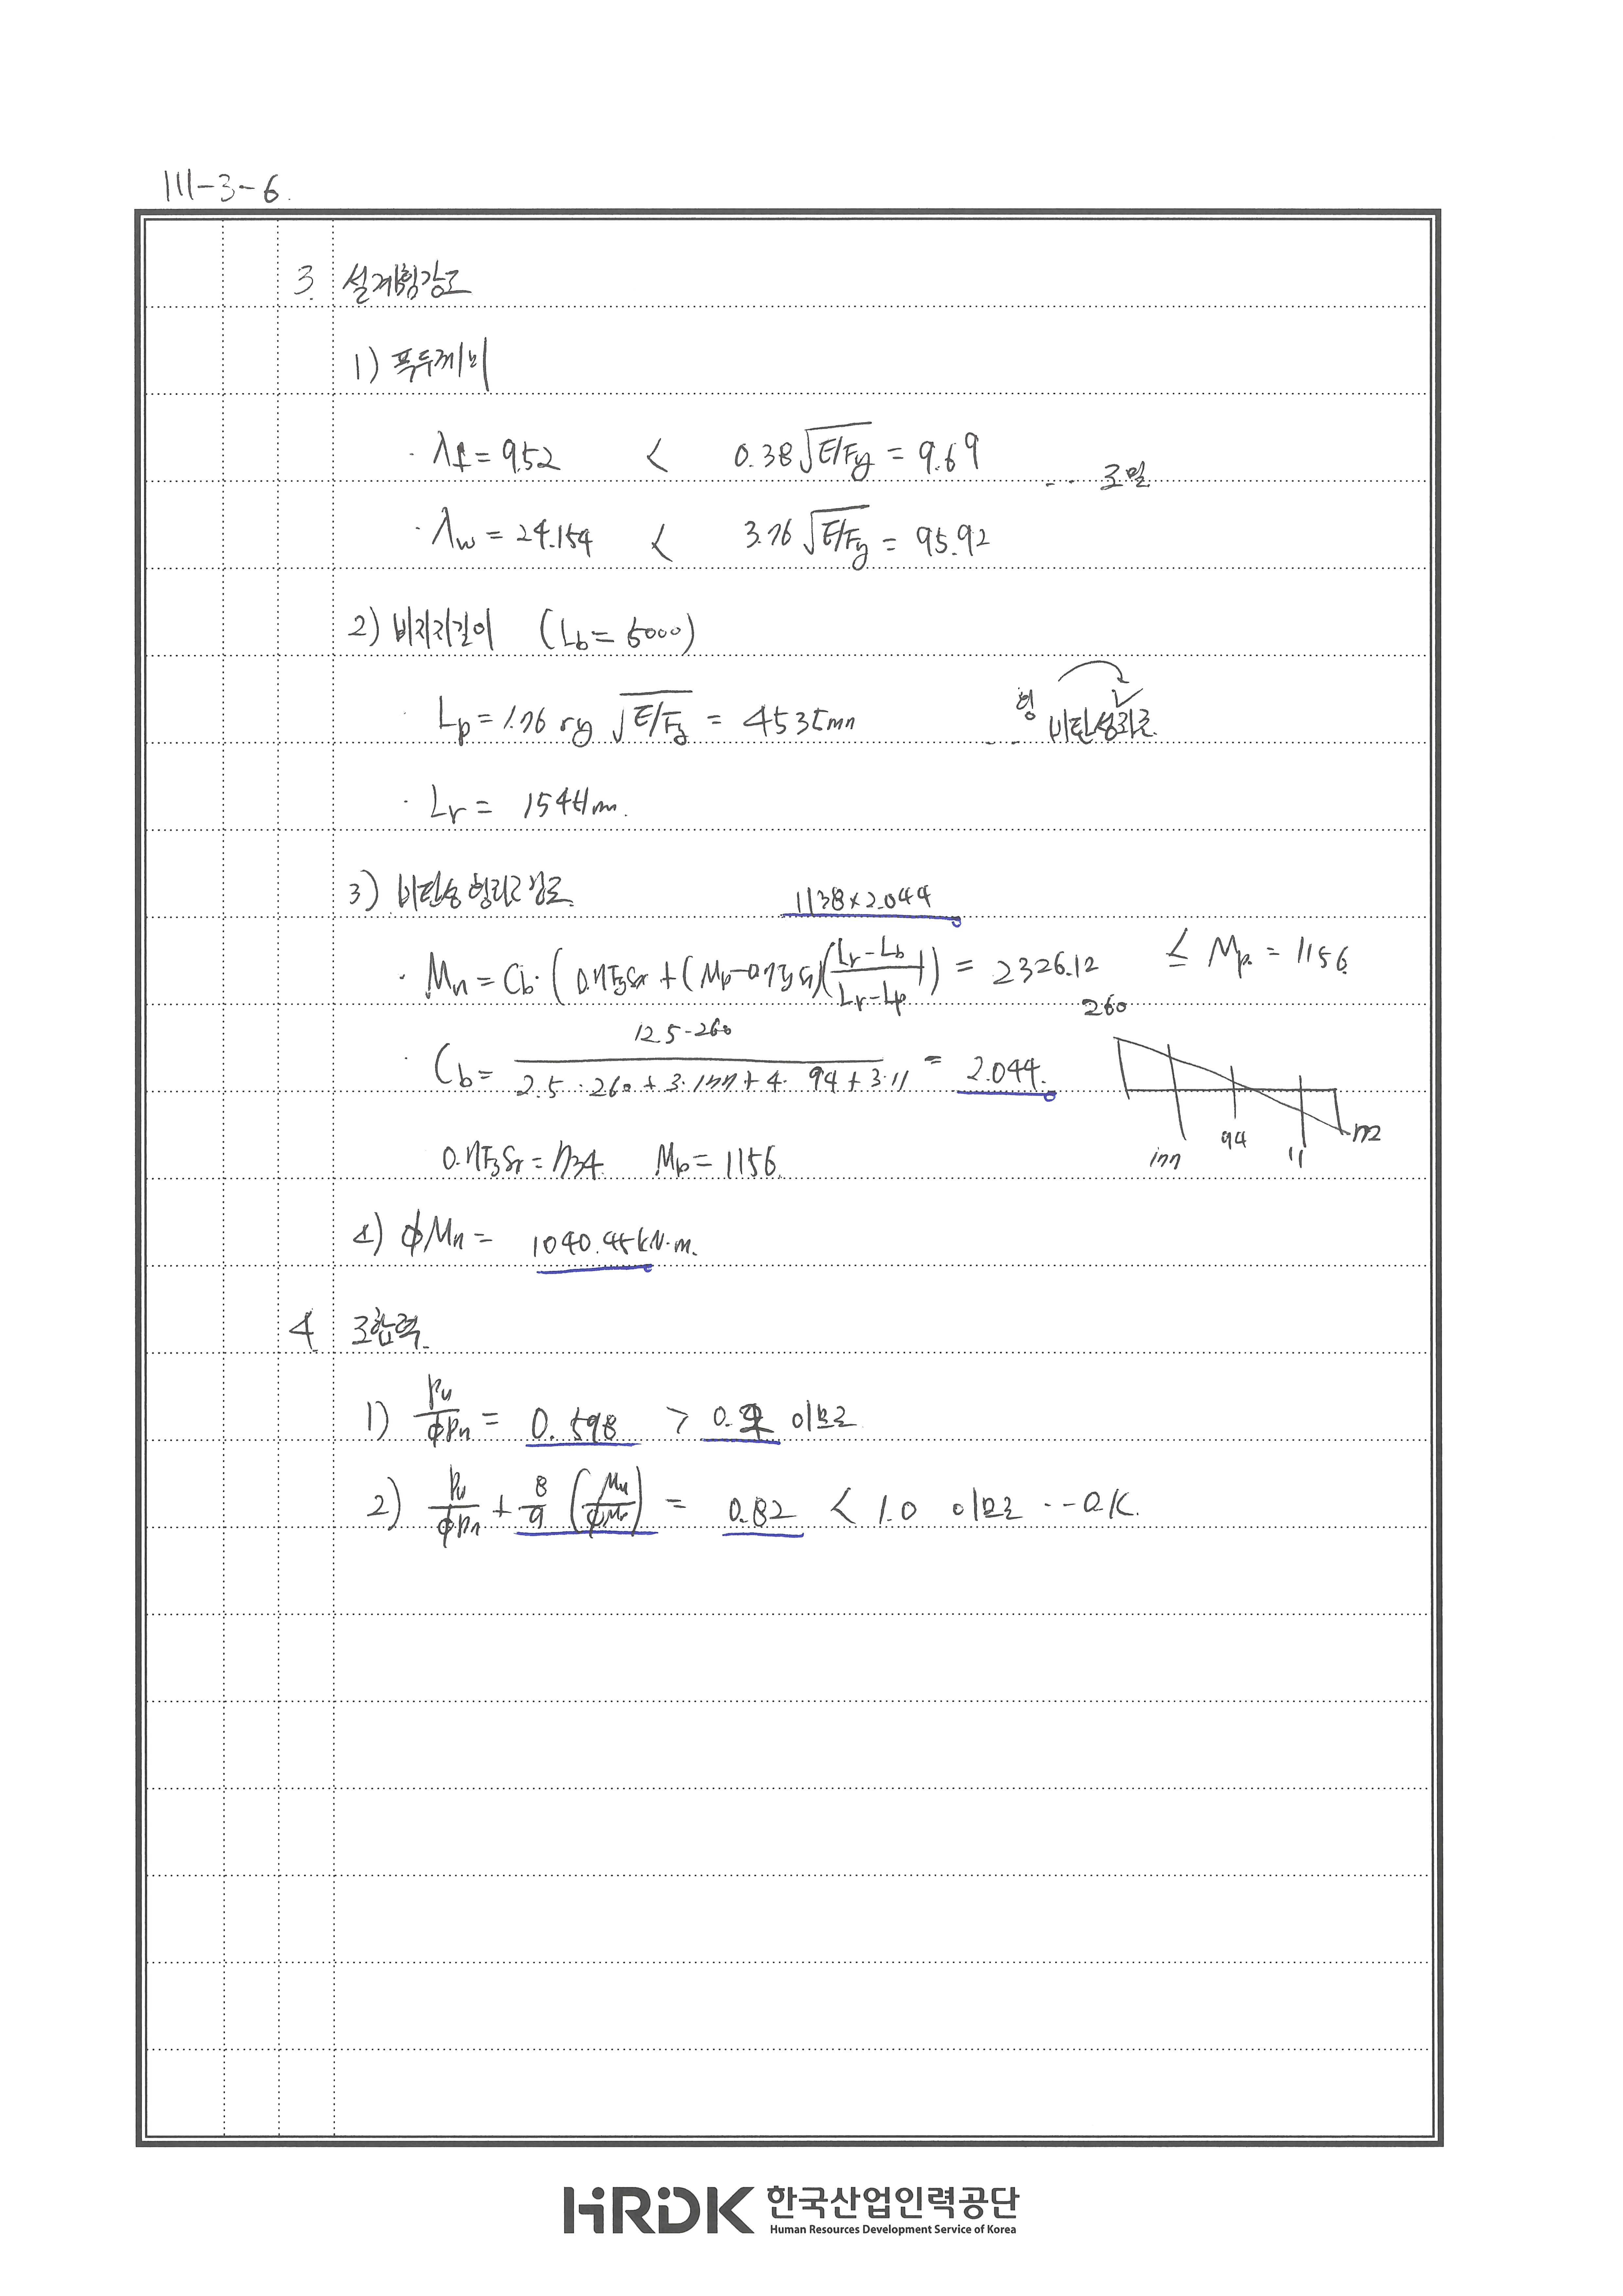 111-3-6.
3. 설계휨강도
1) 폭두께비
· λf = 9.52 < 0.38√E/Fy = 9.69
--- 조밀
· λw = 24.154 < 3.76√E/Fy = 95.92
2) 비지지길이 (Lb = 5000)
· Lp = 1.76 ry √E/Fy = 4535mm -- 휨 비탄성좌굴.
· Lr = 15441mm.
3) 비탄성 휨좌굴강도
1138×2.044
· Mn = Cb·(0.7FySx + (Mp-0.7FySx)(Lr-Lb/Lr-Lp)) = 2326.12 ≤ Mp = 1156
· Cb = 12.5·260 / 2.5·260 + 3·177 + 4·94 + 3·11 = 2.044.
260
177 94 11 72
0.7FySx = 734. Mp = 1156.
4) ϕMn = 1040.45kN·m.
4. 조합력.
1) Pu/ϕPn = 0.598 > 0.2 이므로
2) Pu/ϕPn + 8/9 (Mu/ϕMn) = 0.82 < 1.0 이므로 --O.K.
HRDK 한국산업인력공단
Human Resources Development Service of Korea